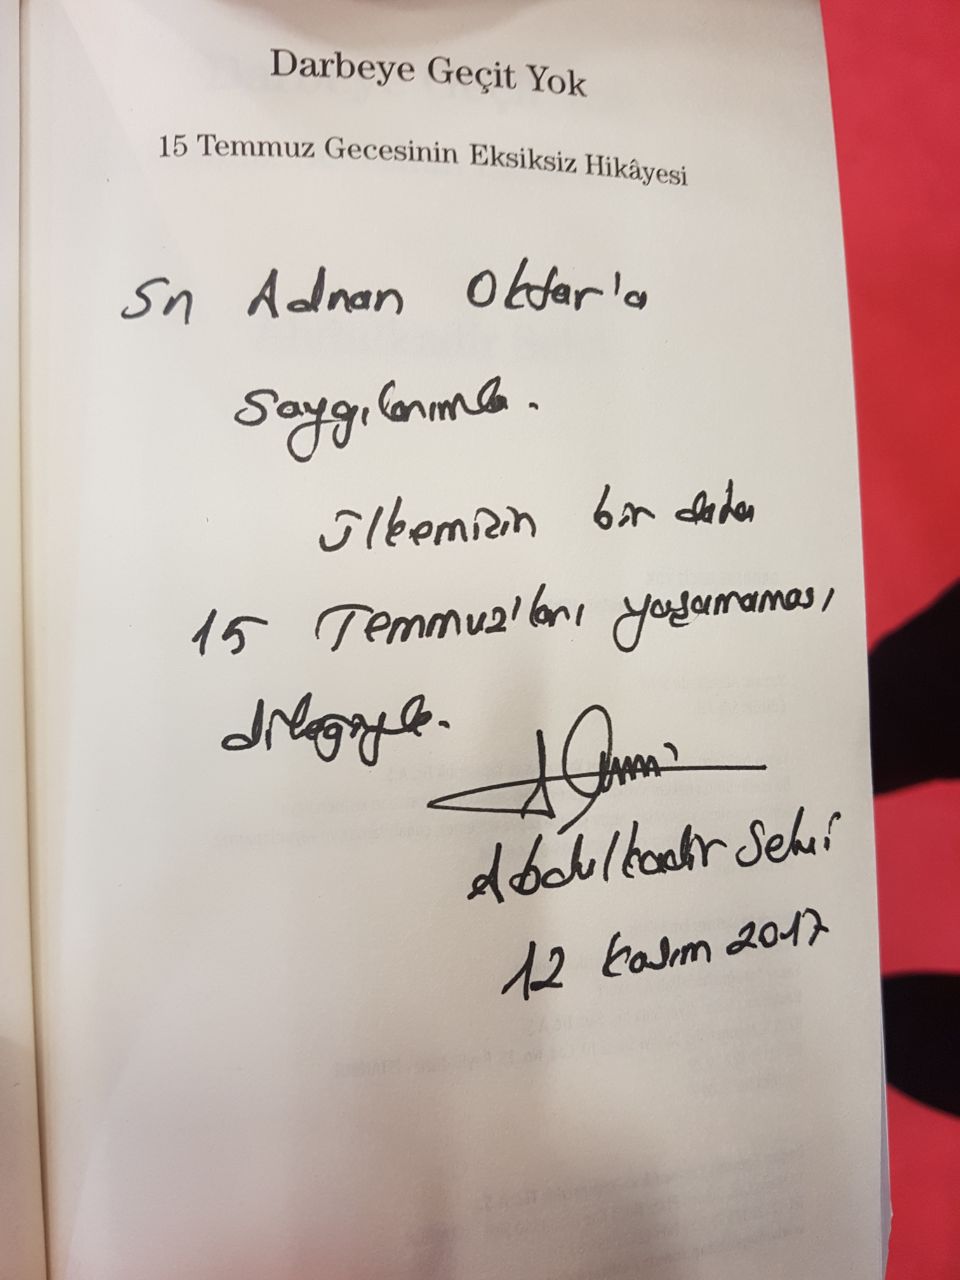 Darbeye Geçit Yok
15 Temmuz Gecesinin Eksiksiz Hikâyesi
Sn Adnan Oktar'a
Saygılarımla.
Ülkemizin bir daha
15 Temmuz'ları yaşamaması
dileğiyle.
Abdulkadir Selvi
12 Kasım 2017